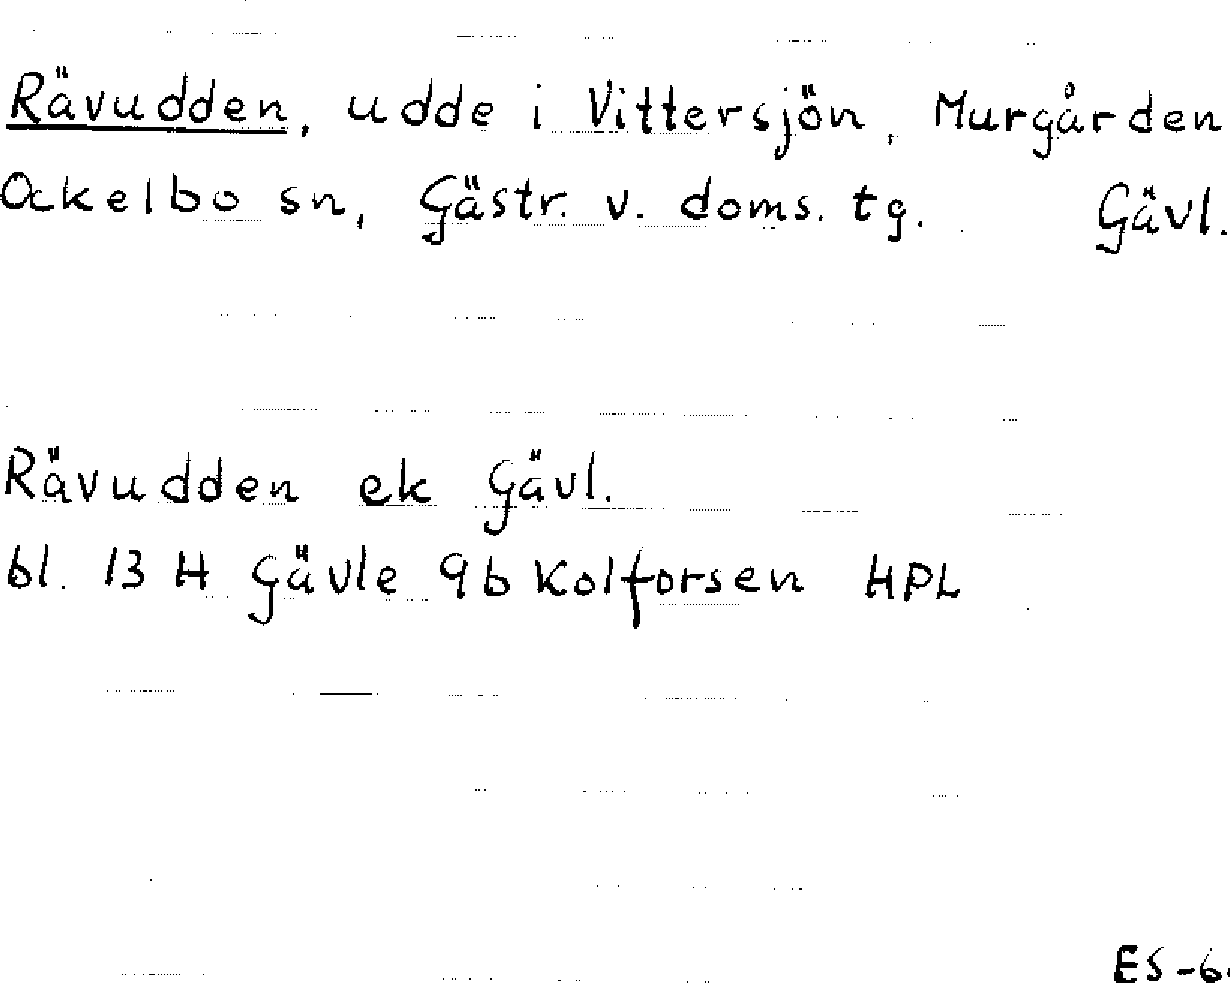 Rävudden, udde i Vittersjön, Murgården
Ockelbo sn, Gästr. v. doms. tg. Gävl.
Rävudden ek Gävl.
bl. 13 H Gävle 9b Kolforsen HPL
ES-6